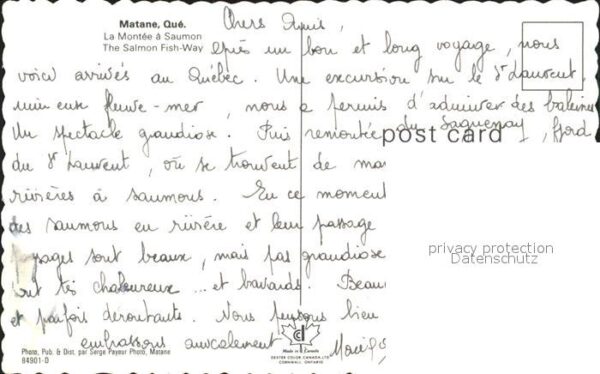 Matane, Qué.
La Montée à Saumon
The Salmon Fish-Way
Chers Amis,
après un bon et long voyage, nous
voici arrivés au Québec. Une excursion sur le St Laurent,
fleuve-mer, nous a permis d'admirer des baleines
Un spectacle grandiose. Puis remontée du Saguenay, fjord
post card
du St Laurent, où se trouvent de
rivières à saumons. En ce moment
des saumons en rivière et leur passage
sont beaux, mais pas grandiose
chaleureux ... et bavards.
et parfois déroutante. Nous pensons bien
embrassons amicalement
privacy protection
Datenschutz
Photo, Pub. & Dist. par Serge Payeur Photo, Matane
84901-D
Made in Canada
DEXTER COLOR CANADA LTD.
CORNWALL, ONTARIO